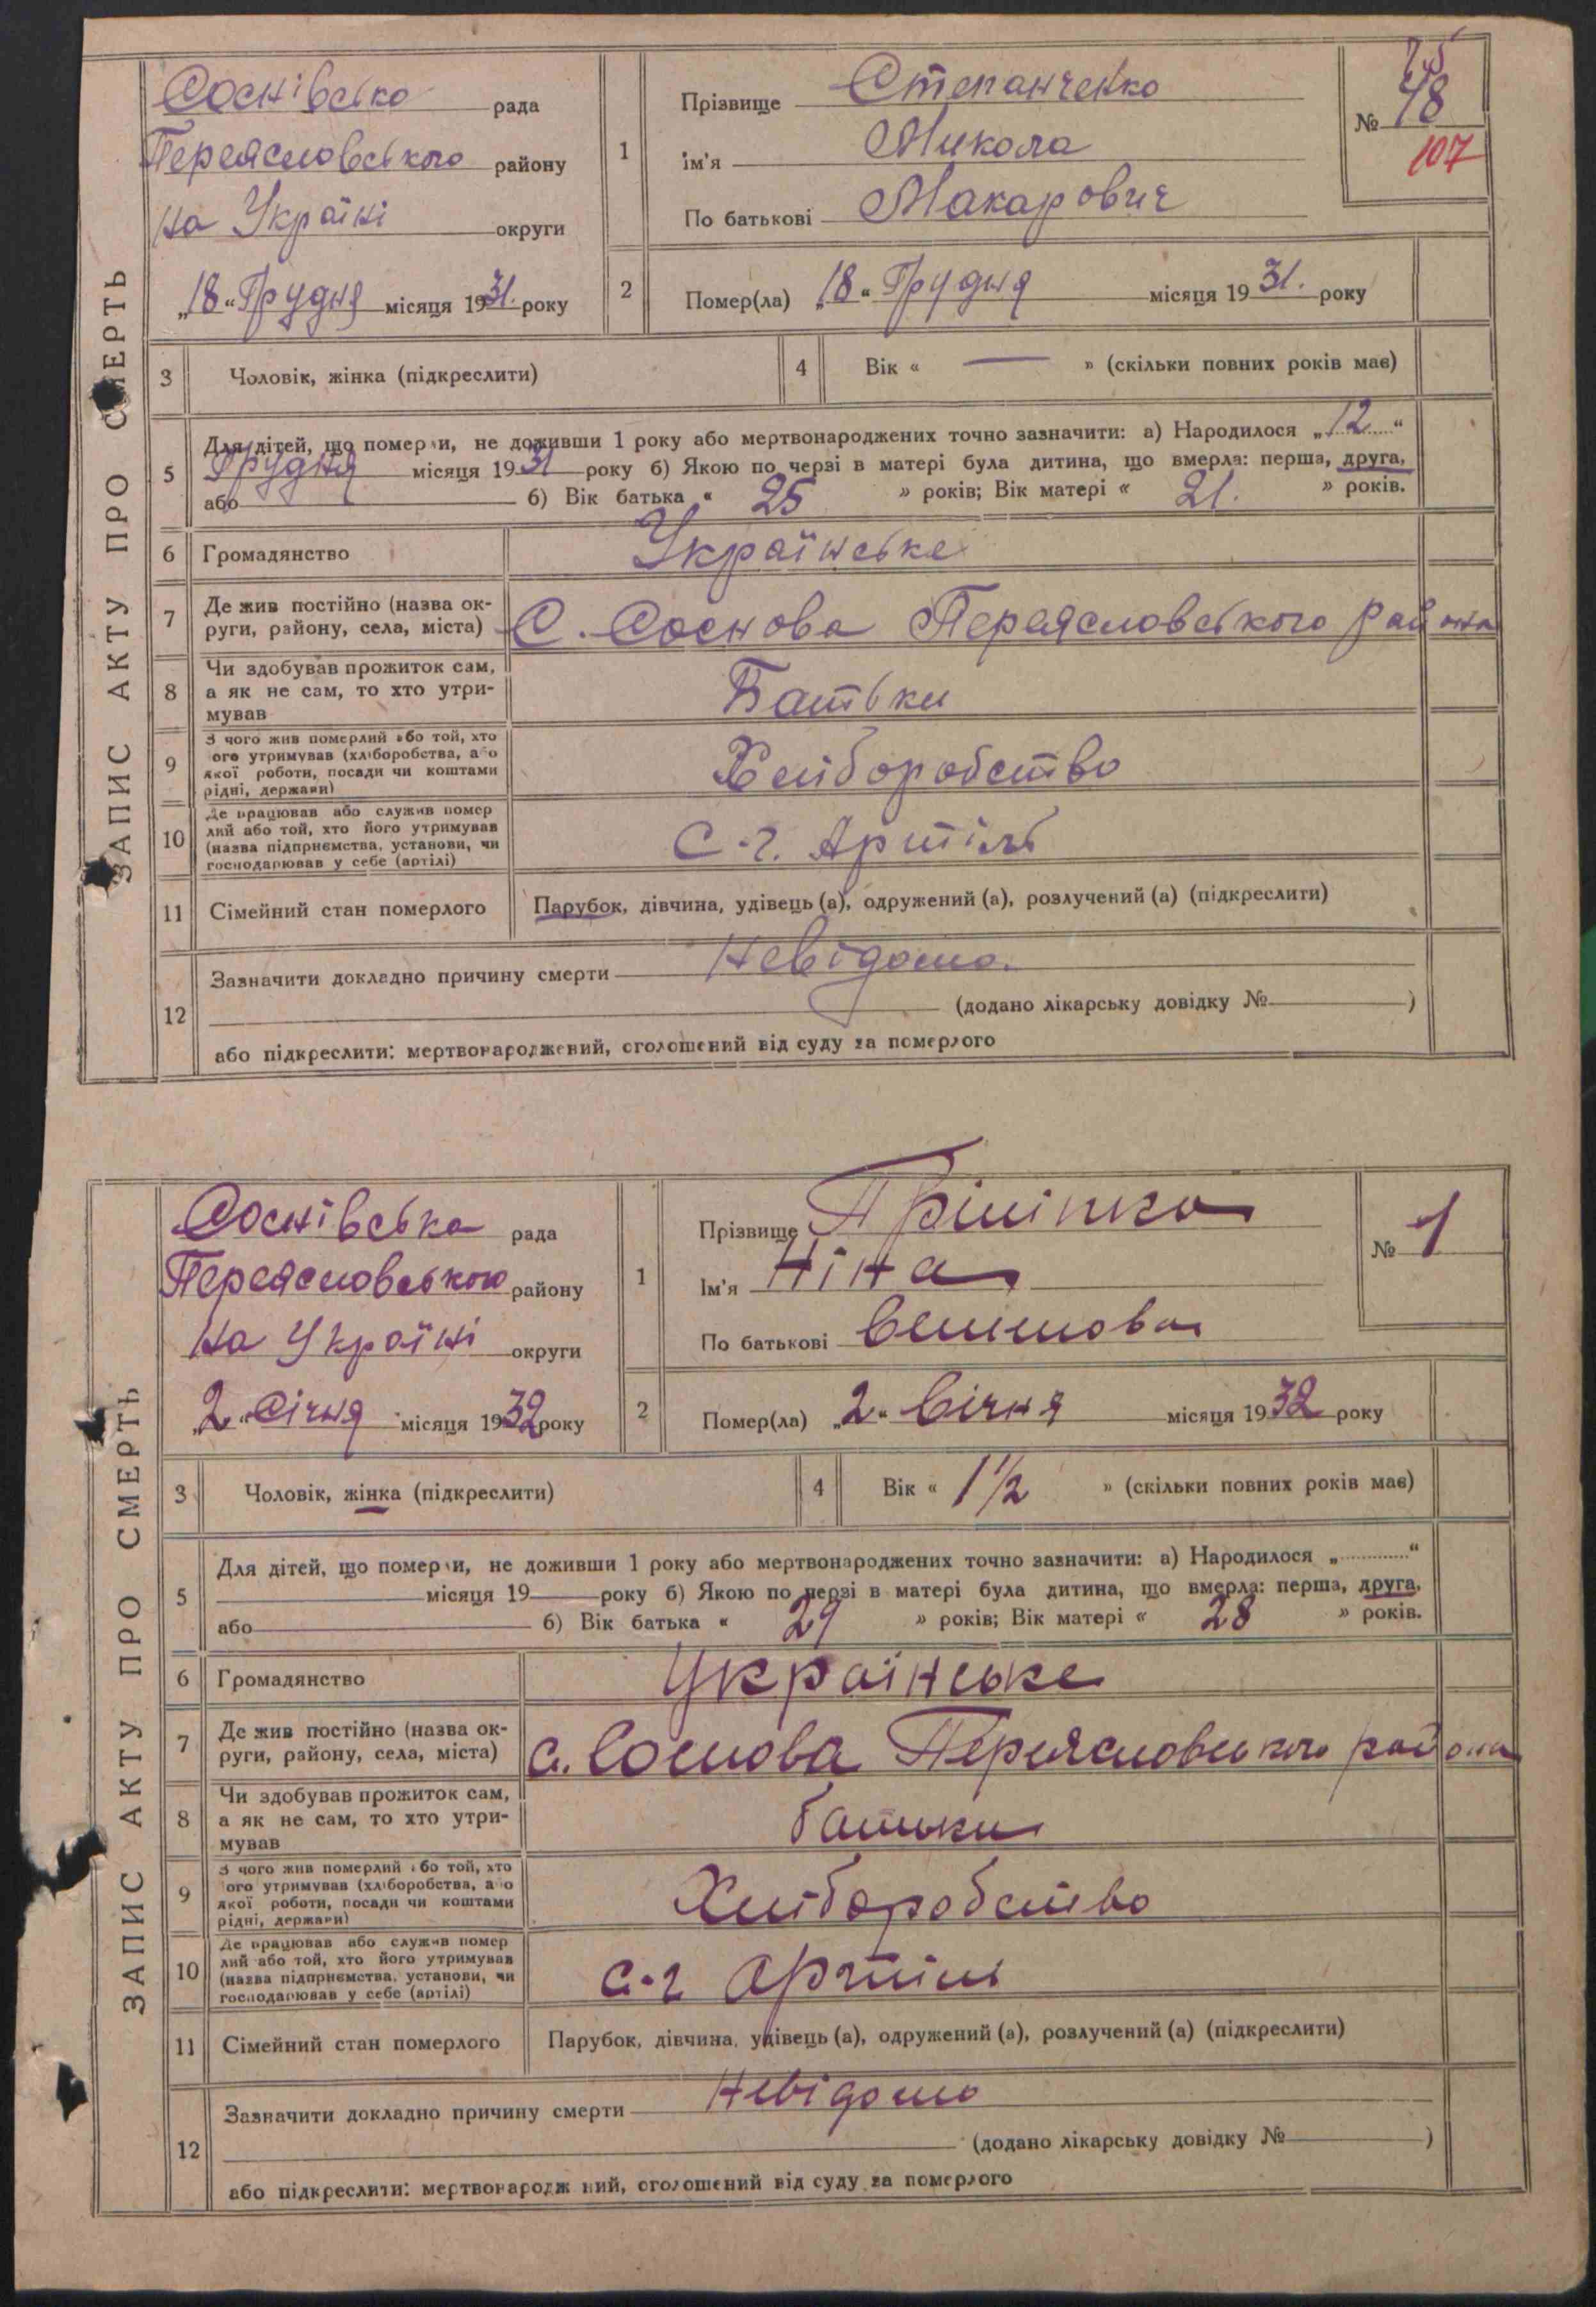 ЗАПИС АКТУ ПРО СМЕРТЬ
Соснівсько рада
Переясловського району
на Україні округи
„18“ Грудня місяця 1931. року
1
Прізвище Степанченко
ім'я Микола
По батькові Макарович
№ 48
107
2
Помер(ла) „18“ Грудня місяця 1931. року
3 Чоловік, жінка (підкреслити)
4 Вік « — » (скільки повних років має)
5 Для дітей, що померли, не доживши 1 року або мертвонароджених точно зазначити: а) Народилося „12“
Грудня місяця 1931 року б) Якою по черзі в матері була дитина, що вмерла: перша, друга,
або б) Вік батька « 25 » років; Вік матері « 21. » років.
6 Громадянство Українське
7 Де жив постійно (назва ок-
руги, району, села, міста) С. Соснова Переясловського района
8 Чи здобував прожиток сам,
а як не сам, то хто утри-
мував Батьки
9 З чого жив померлий або той, хто
ого утримував (хліборобства, або
якої роботи, посади чи коштами
рідні, держави) Хліборобство
10 Де працював або служив помер
лий або той, хто його утримував
(назва підприємства, установи, чи
господарював у себе (артілі) С-г. Артіль
11 Сімейний стан померлого Парубок, дівчина, удівець (а), одружений (а), розлучений (а) (підкреслити)
12 Зазначити докладно причину смерти Невідомо.
(додано лікарську довідку № )
або підкреслити: мертвонароджений, оголошений від суду за померлого
ЗАПИС АКТУ ПРО СМЕРТЬ
Соснівська рада
Переясловського району
на Україні округи
„2“ Січня місяця 1932 року
1
Прізвище
Ім'я Ніна
По батькові
№ 1
2
Помер(ла) „2“ Січня місяця 1932 року
3 Чоловік, жінка (підкреслити)
4 Вік « 1 1/2 » (скільки повних років має)
5 Для дітей, що померли, не доживши 1 року або мертвонароджених точно зазначити: а) Народилося „ “
місяця 19 року б) Якою по черзі в матері була дитина, що вмерла: перша, друга,
або б) Вік батька « 29 » років; Вік матері « 28 » років.
6 Громадянство Українське
7 Де жив постійно (назва ок-
руги, району, села, міста) с. Соснова Переясловського района
8 Чи здобував прожиток сам,
а як не сам, то хто утри-
мував батьки
9 З чого жив померлий або той, хто
ого утримував (хліборобства, або
якої роботи, посади чи коштами
рідні, держави) Хліборобство
10 Де працював або служив помер
лий або той, хто його утримував
(назва підприємства, установи, чи
господарював у себе (артілі) с-г Артіль
11 Сімейний стан померлого Парубок, дівчина, удівець (а), одружений (а), розлучений (а) (підкреслити)
12 Зазначити докладно причину смерти Невідомо
(додано лікарську довідку № )
або підкреслити: мертвонародж ний, оголошений від суду за померлого